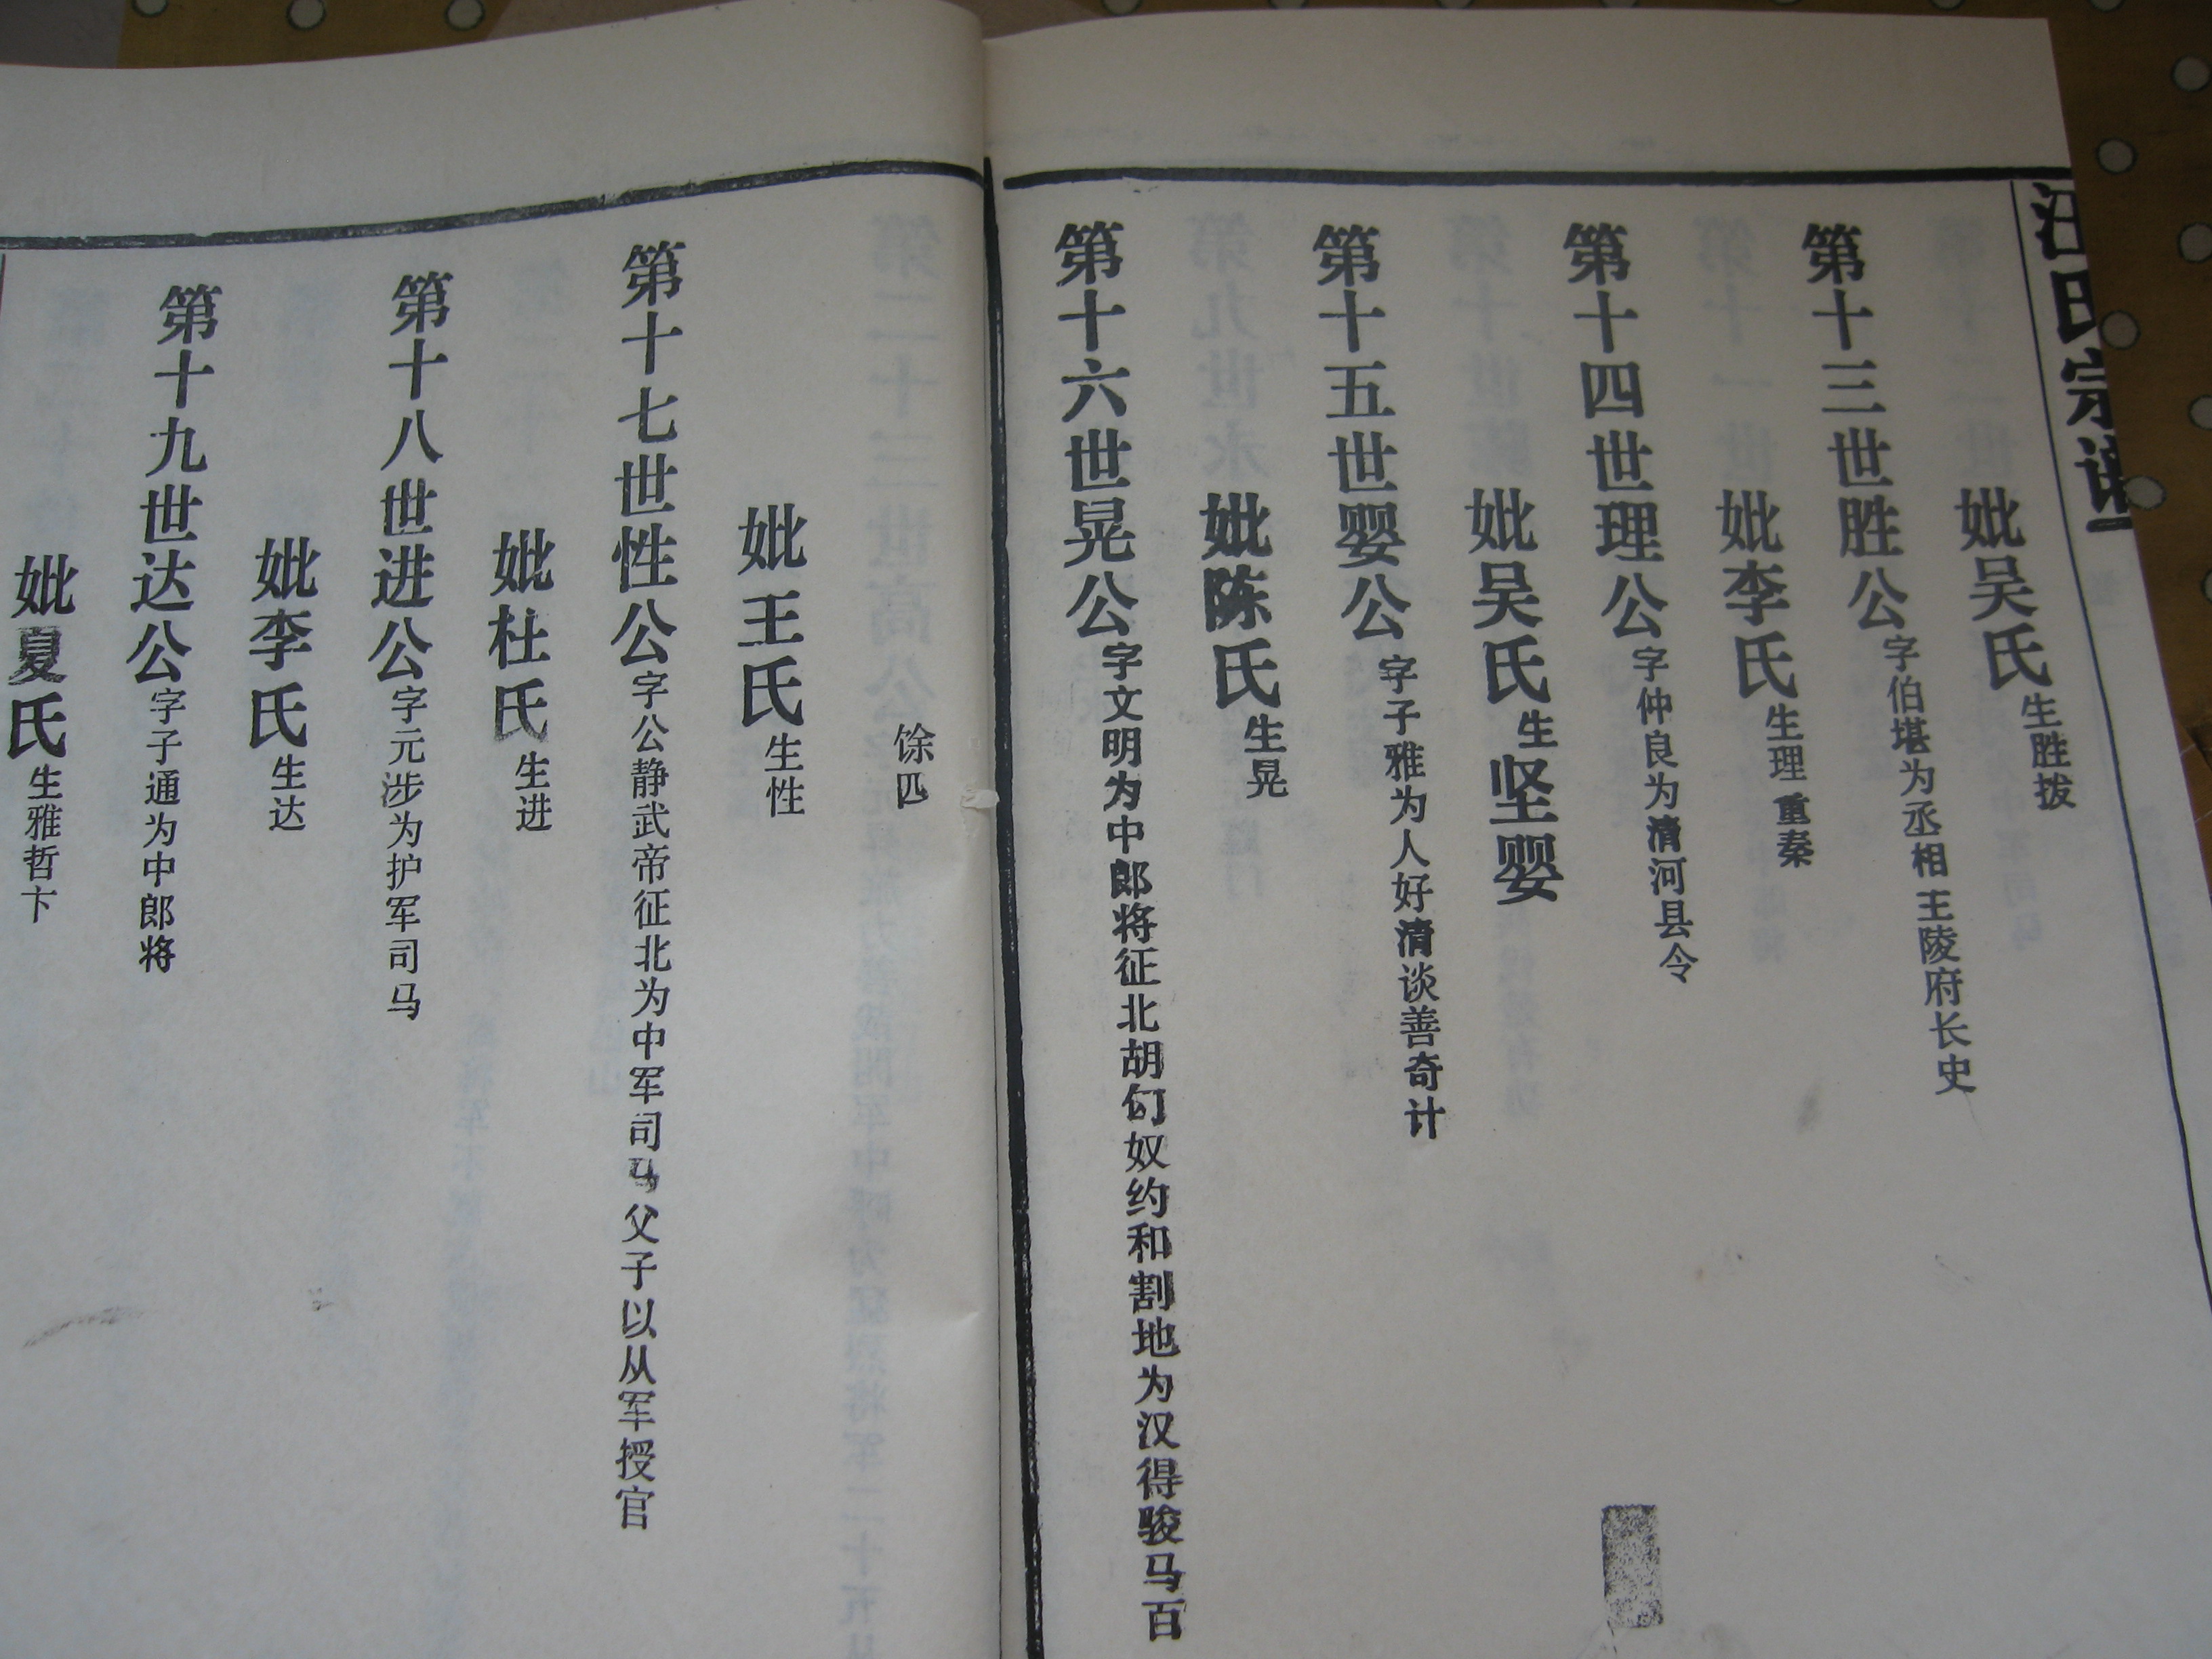 汪氏宗谱
妣吴氏生胜拨
第十三世胜公字伯堪为丞相王陵府长史
妣李氏生理重秦
第十四世理公字仲良为清河县令
妣吴氏生坚婴
第十五世婴公字子雅为人好清谈善奇计
妣陈氏生晃
第十六世晃公字文明为中郎将征北胡匈奴约和割地为汉得骏马百
馀匹
妣王氏生性
第十七世性公字公静武帝征北为中军司马父子以从军授官
妣杜氏生进
第十八世进公字元涉为护军司马
妣李氏生达
第十九世达公字子通为中郎将
妣夏氏生雅哲卞